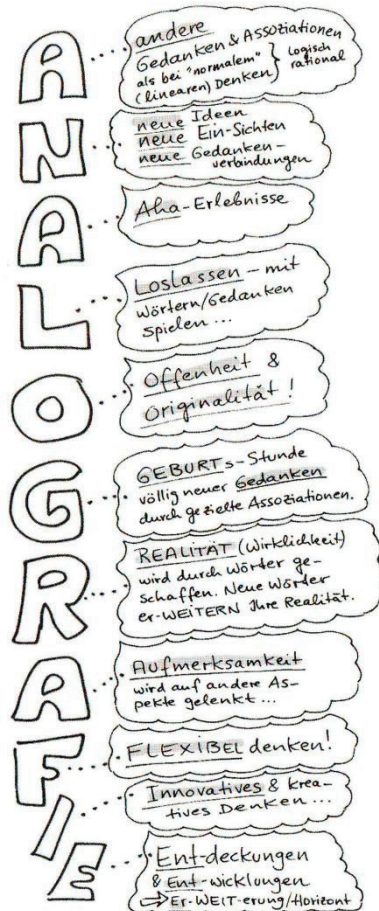 A
andere
Gedanken & Assoziationen
als bei "normalem" } Logisch
(linearen) Denken } rational
N
neue Ideen
neue Ein-Sichten
neue Gedanken-
verbindungen
A
Aha-Erlebnisse
L
Loslassen – mit
Wörtern/Gedanken
spielen ...
O
Offenheit &
Originalität!
G
GEBURTs-Stunde
völlig neuer Gedanken
durch gezielte Assoziationen.
R
REALITÄT (Wirklichkeit)
wird durch Wörter ge-
schaffen. Neue Wörter
er-WEITERN Ihre Realität.
A
Aufmerksamkeit
wird auf andere As-
pekte gelenkt ...
F
FLEXIBEL denken!
I
Innovatives & krea-
tives Denken ...
E
Ent-deckungen
& Ent-wicklungen
⇒ Er-WEIT-erung/Horizont